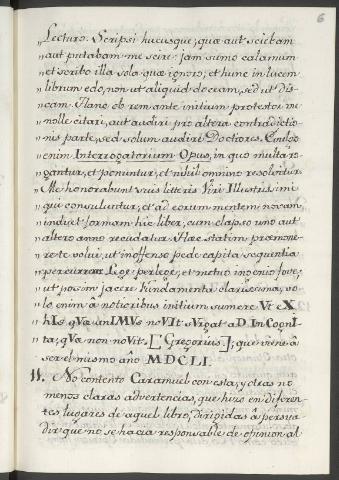 6
„Lectura. Scripsi hucusque, quæ aut sciebam
„aut putabam me scire: jam sumo calamum
„et scribo illa sola quæ ignoro; et hunc in lucem
„librum edo, non ut aliquid doceam, sed ut dis-
„cam. Plane ob rem ante initium protestor me
„nolle citari, aut audiri pro altera contradictio-
„nis parte, sed solum audiri Doctores. Cudo
„enim Interrogatorium Opus, in quo multa ro-
„gantur, et ponuntur, et nihil omnino resolvitur.
„Me honorabunt suis litteris Viri Illustrissimi
„qui consuluntur, et ad eorum mentem novam
„induet formam hic liber, cum elapso uno aut
„altero anno recudatur. Hæc statim præmone-
„re te volui, ut inoffenso pede capita sequentia
„percurras. Lege perlege, et metuo ingenio fove,
„ut possim jacere fundamenta clarissima, vo-
„lo enim â notioribus initium sumere Vt eX
„hIs qVæ anIMVs noVIt sVrgat aD InCognI-
„ta, qVæ non noVIt. [S. Gregorius.]; que viene â
„ser el mismo año MDCLI.
11. No contento Caramuel con esta, y otras no
menos claras advertencias, que hizo en diferen-
tes lugares de aquel libro, dirigidas â persua-
dir que no se hacia responsable de opinion al